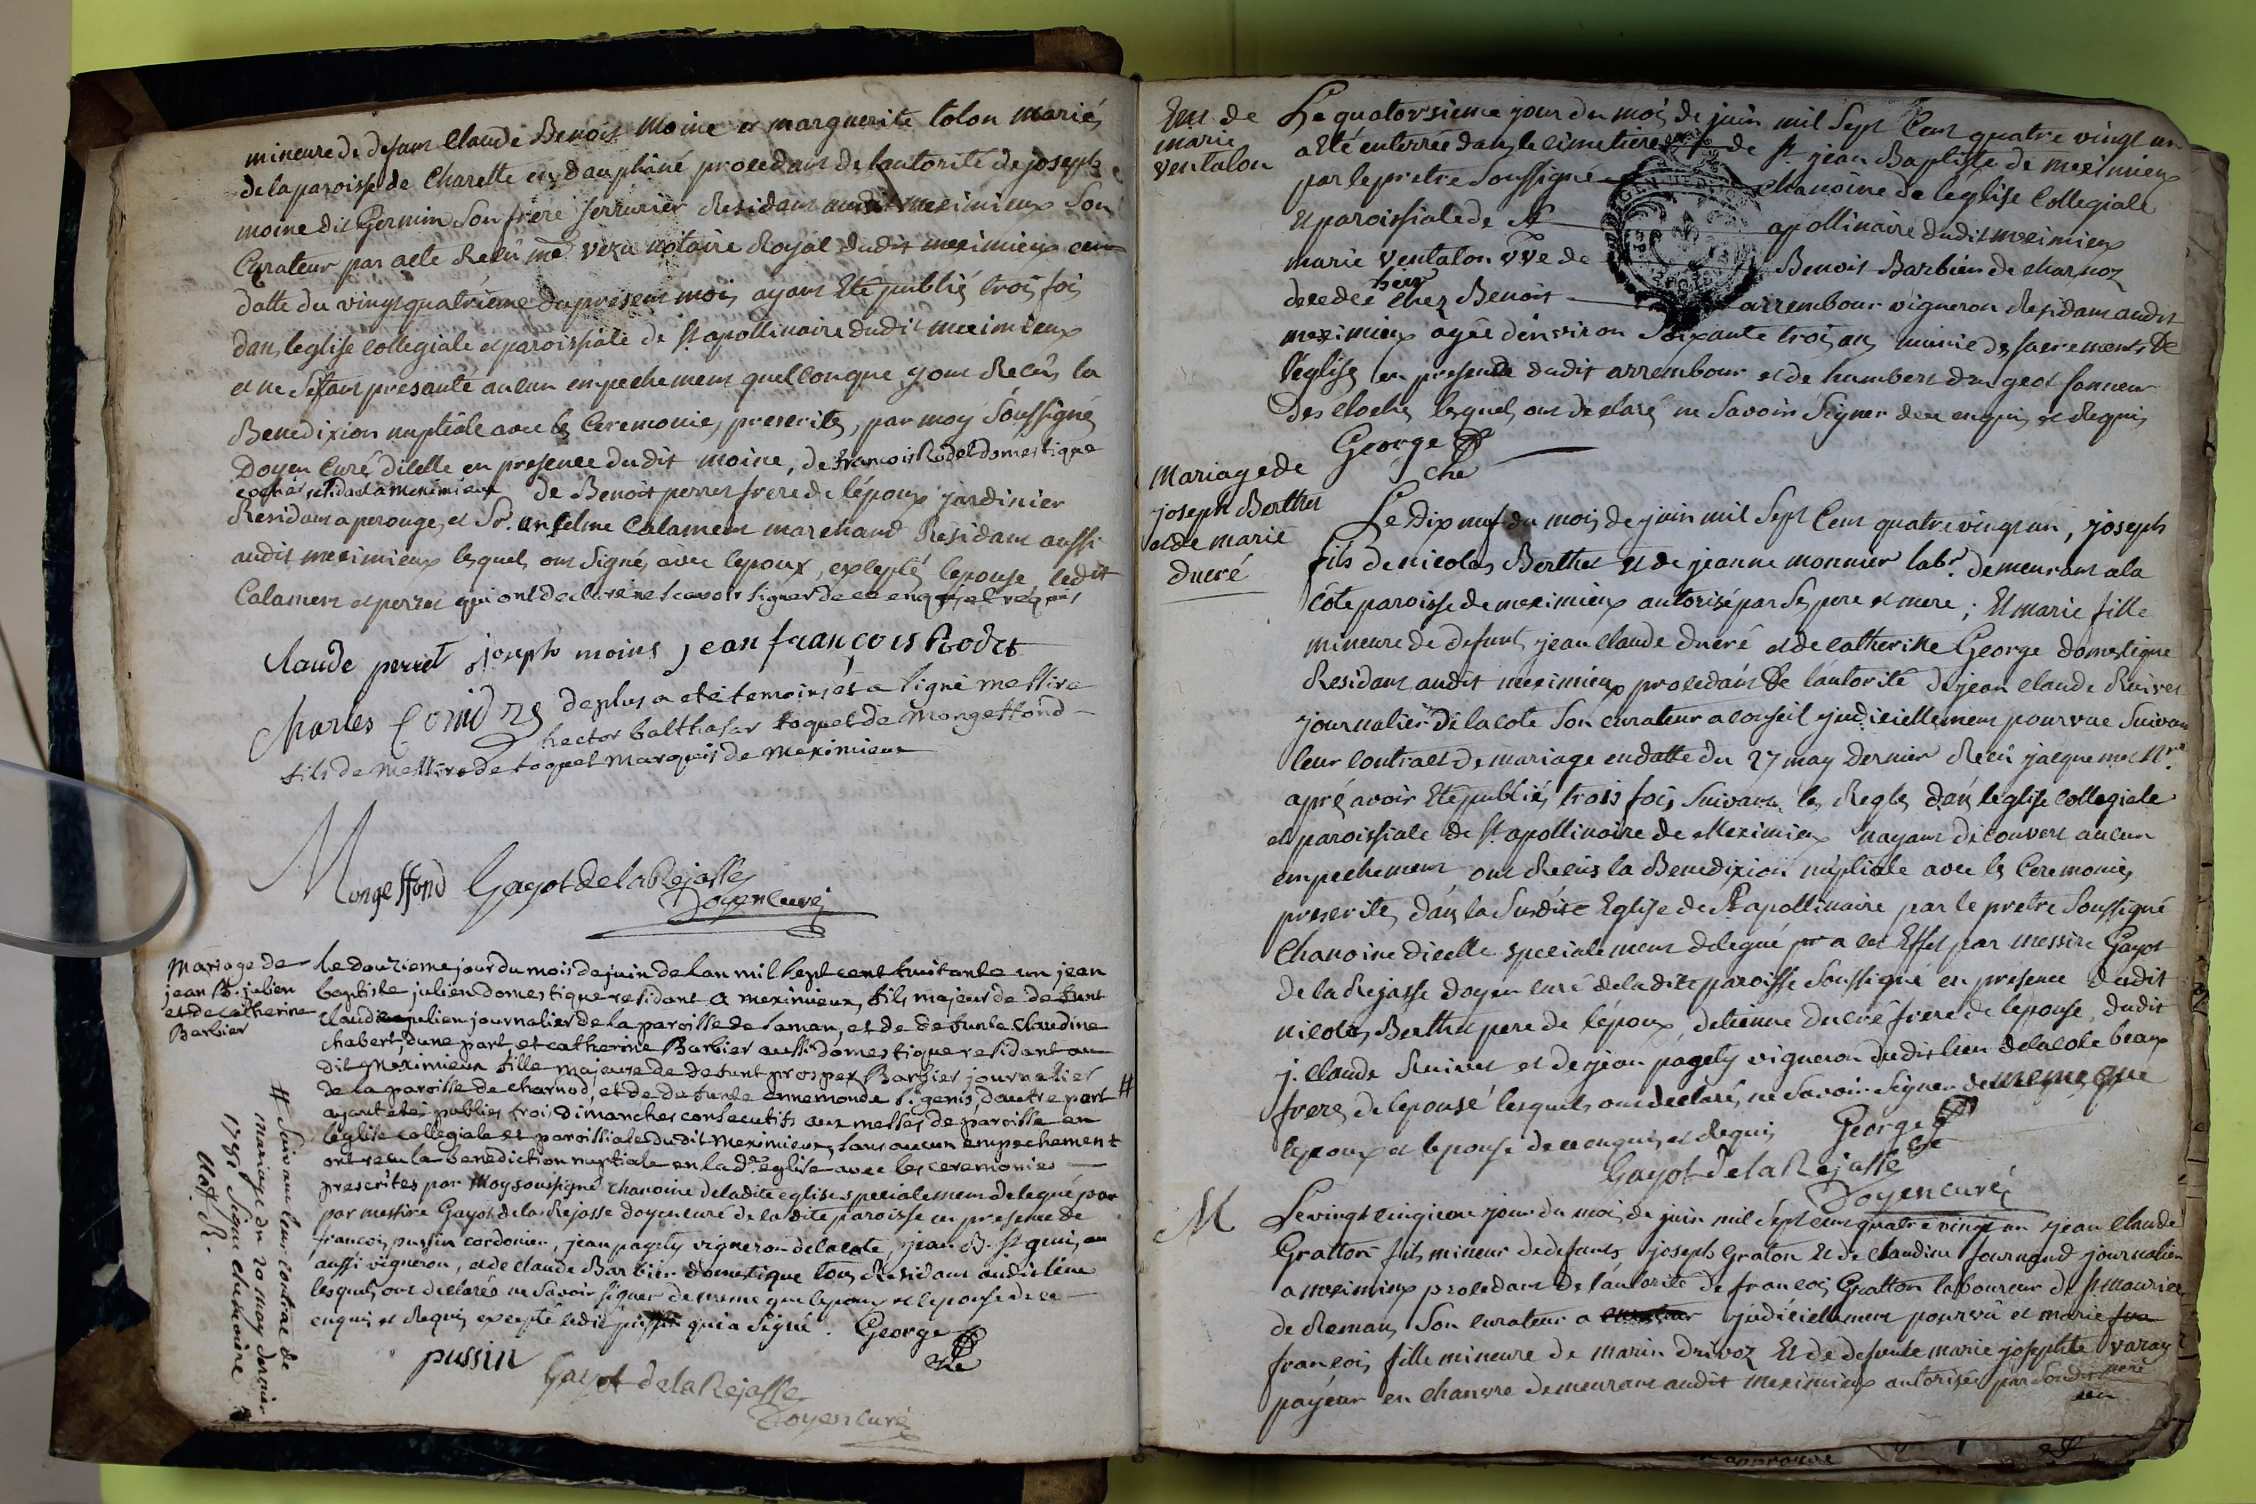 mineure de defunt Claude Benoit Moine et marguerite Colon mariés
de la paroisse de Charette en dauphiné procedant de lautorité de joseph
moine dit Germin Son frere serrurier Residant audit meximieux Son
Curateur par acte Recû me notaire Royal dudit meximieux en
datte du vingt quatrieme du present mois ayant Eté publiés trois fois
dans leglise collegiale et paroissiale de St apollinaire dudit meximieux
et ne Setant presanté aucun empechement quelconque y ont Recûs la
Benedixion nuptiale avec les Ceremonies prescrites, par moy Soussigné
Doyen Curé dicelle en presence dudit moine, de francois Rodet domestique
residant a meximieux de Benoit perret frere de lépoux jardinier
Residant a perouge, et Sr. anselme Calamen marchand Residant aussi
audit meximieux lesquels ont Signés avec lepoux, excepté lepouse, ledit
Calamen et perret qui ont declaré ne scavoir signer de ce enquis et requis
claude perret joseph moine jean françois Rodet
Charles de plus a eté temoin et a signé messire
hector balthasar toquet de mongeffond
fils de messire de toquet marquis de meximieux
Mongeffond Gayot de la Rejasse
Doyen Curé
Mariage de
jean B. julien
et de catherine
Barbier
le douzieme jour du mois de juin de lan mil sept cent huitante un jean
baptiste julien domestique residant a meximieux, fils majeur de defunt
claude julien journalier de la paroisse de , et de defunte claudine
chabert, dune part et catherine Barbier aussi domestique residant au
dit meximieux fille majeure de defunt prosper Barbier journalier
de la paroisse de charnod, et de defunte ennemonde St. genis, dautre part #
ayant etés publies trois dimanches consecutifs aux messes de paroisse en
leglise collegiale et paroissiale dudit meximieux, sans aucun empechement
ont recu la benediction nuptiale en lad.e eglise avec les ceremonies
prescrites par moy soussigné chanoine de ladite eglise specialement delegué par
par messire Gayot de la Rejasse doyen curé de la dite paroisse en presence de
francois pussin cordonier, jean pagely vigneron de la cote, jean B.
aussi vigneron, et de claude Barbier domestique tous Residant audit lieu
lesquels ont declarés ne savoir signer de meme que lepoux et lepouse de ce
enquis et Requis excepté ledit pussin qui a Signé. George
che
pussin
Gayot de la Rejasse
Doyen curé
# Suivant leur contrat de
mariage du 20 may dernier
1781 Signé chemoine
Not. R.
Ent de
marie
Ventalon
Le quatorsieme jour du mois de juin mil Sept Cent quatre vingt un
a été enterrée dans le cimetiere de St jean Baptiste de meximieux
par le pretre Soussigné chanoine de leglise Collegiale
et paroissiale de St apollinaire dudit meximieux
marie Ventalon vve de Benoit Barbier de charnoz
decedée hier chez Benoit arrembour vigneron Residant audit
meximieux agée denviron Soixante trois ans munie des sacrements de
léglise en presence dudit arrembour et de humbert dangeot sonneur
des cloches lesquels ont declaré ne savoir Signer de ce enquis et Requis
George
che
Mariage de
joseph Berthet
et de marie
ducré
Le Dix neuf du mois de juin mil Sept Cent quatre vingt un, joseph
fils de nicolas Berthet et de jeanne monnier labr. demeurant a la
Côte paroisse de meximieux autorisé par Ses pere et mere; Et marie fille
mineure de defunt jean Claude ducré et de Catherine George domestique
Residant audit meximieux procedant de lautorité de jean Claude Ruivet
journalier de la cote Son curateur a conseil judiciellement pourvue Suivant
leur contract de mariage en datte du 27 may Dernier Recû jacquemet Nre
après avoir Eté publiés trois fois Suivant les Regles dans leglise Collegiale
et paroissiale de St apollinaire de Meximieux nayant découvert aucun
empechement ont Recûs la Benedixion nuptiale avec les Ceremonies
prescrites dans la Susdite Eglise de St apollinaire par le pretre Soussigné
Chanoine dicelle specialement delegué pr a cet Effet par messire Gayot
De la Rejasse doyen curé de ladite paroisse Soussigné en presence dudit
nicolas Berthet pere de lépoux, detienne Ducré frere de lepouse, dudit
j. Claude Ruivet et de jean pagely vigneron dudit lieu de la cote beaux
freres de lepouse lesquels ont declaré ne savoir Signer de meme que
lepoux et lepouse de ce enquis et Requis George
che
Gayot de la Rejasse
Doyen curé
M
Le vingt cinqieme jour du mois de juin mil Sept cent quatre vingt un jean Claude
Gratton fils mineur de defunts joseph Graton et de Claudine Journand journalier
a meximieux procedant de lautorité de francois Gratton laboureur de St maurice
de Remans Son curateur a judiciellement pourvû et marie
francois fille mineure de marin Drivoz Et de defunte marie josephte varay
payeur en chanvre demeurant audit meximieux autorisée par Sondit pere